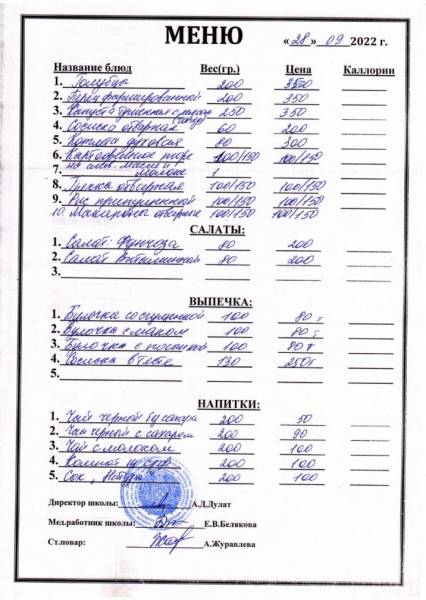 МЕНЮ
«28» 09 2022 г.
Название блюд Вес(гр.) Цена Каллории
1. Голубцы 200 350
2. Перец фаршированной 200 350
3. Капуста 250 350
4. Сосиска отварная 60 200
5. Котлета духовая 80 300
6. Картофельное пюре 100/150 100/150
7. на слив. масле и молоке 1
8. Гречка отварная 100/150 100/150
9. Рис припущенной 100/150 100/150
10. Макароны отварные 100/150 100/150
САЛАТЫ:
1. Салат Фунчоза 80 200
2. Салат Витаминной 80 200
3.
ВЫПЕЧКА:
1. Булочка со сгущенкой 100 80 т
2. Булочка с маком 100 80 т
3. Булочка с 100 80 т
4. Сосиска в тесте 130 250 т
5.
НАПИТКИ:
1. Чай черной без сахара 200 50
2. Чай черной с сахаром 200 90
3. Чай с молоком 200 100
4. Компот из с/ф 200 100
5. Сок, 200 100
Директор школы: А.Д.Дулат
Мед.работник школы: Е.В.Белякова
Ст.повар: А.Журавлева